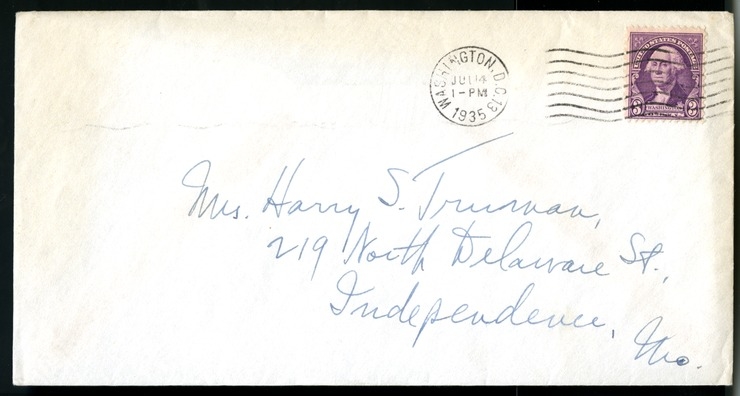 WASHINGTON, D.C. 13
JUL 14
1-PM
1935
UNITED STATES POSTAGE
3 WASHINGTON 3
Mrs. Harry S. Truman,
219 North Delaware St.,
Independence,
Mo.